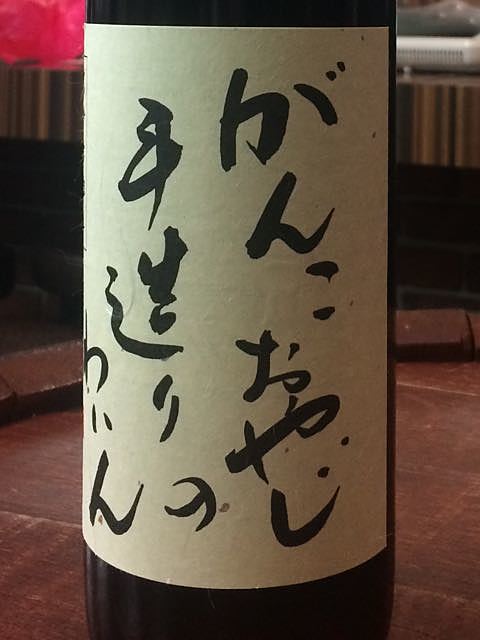 がんこおやじ
手造りの
わいん